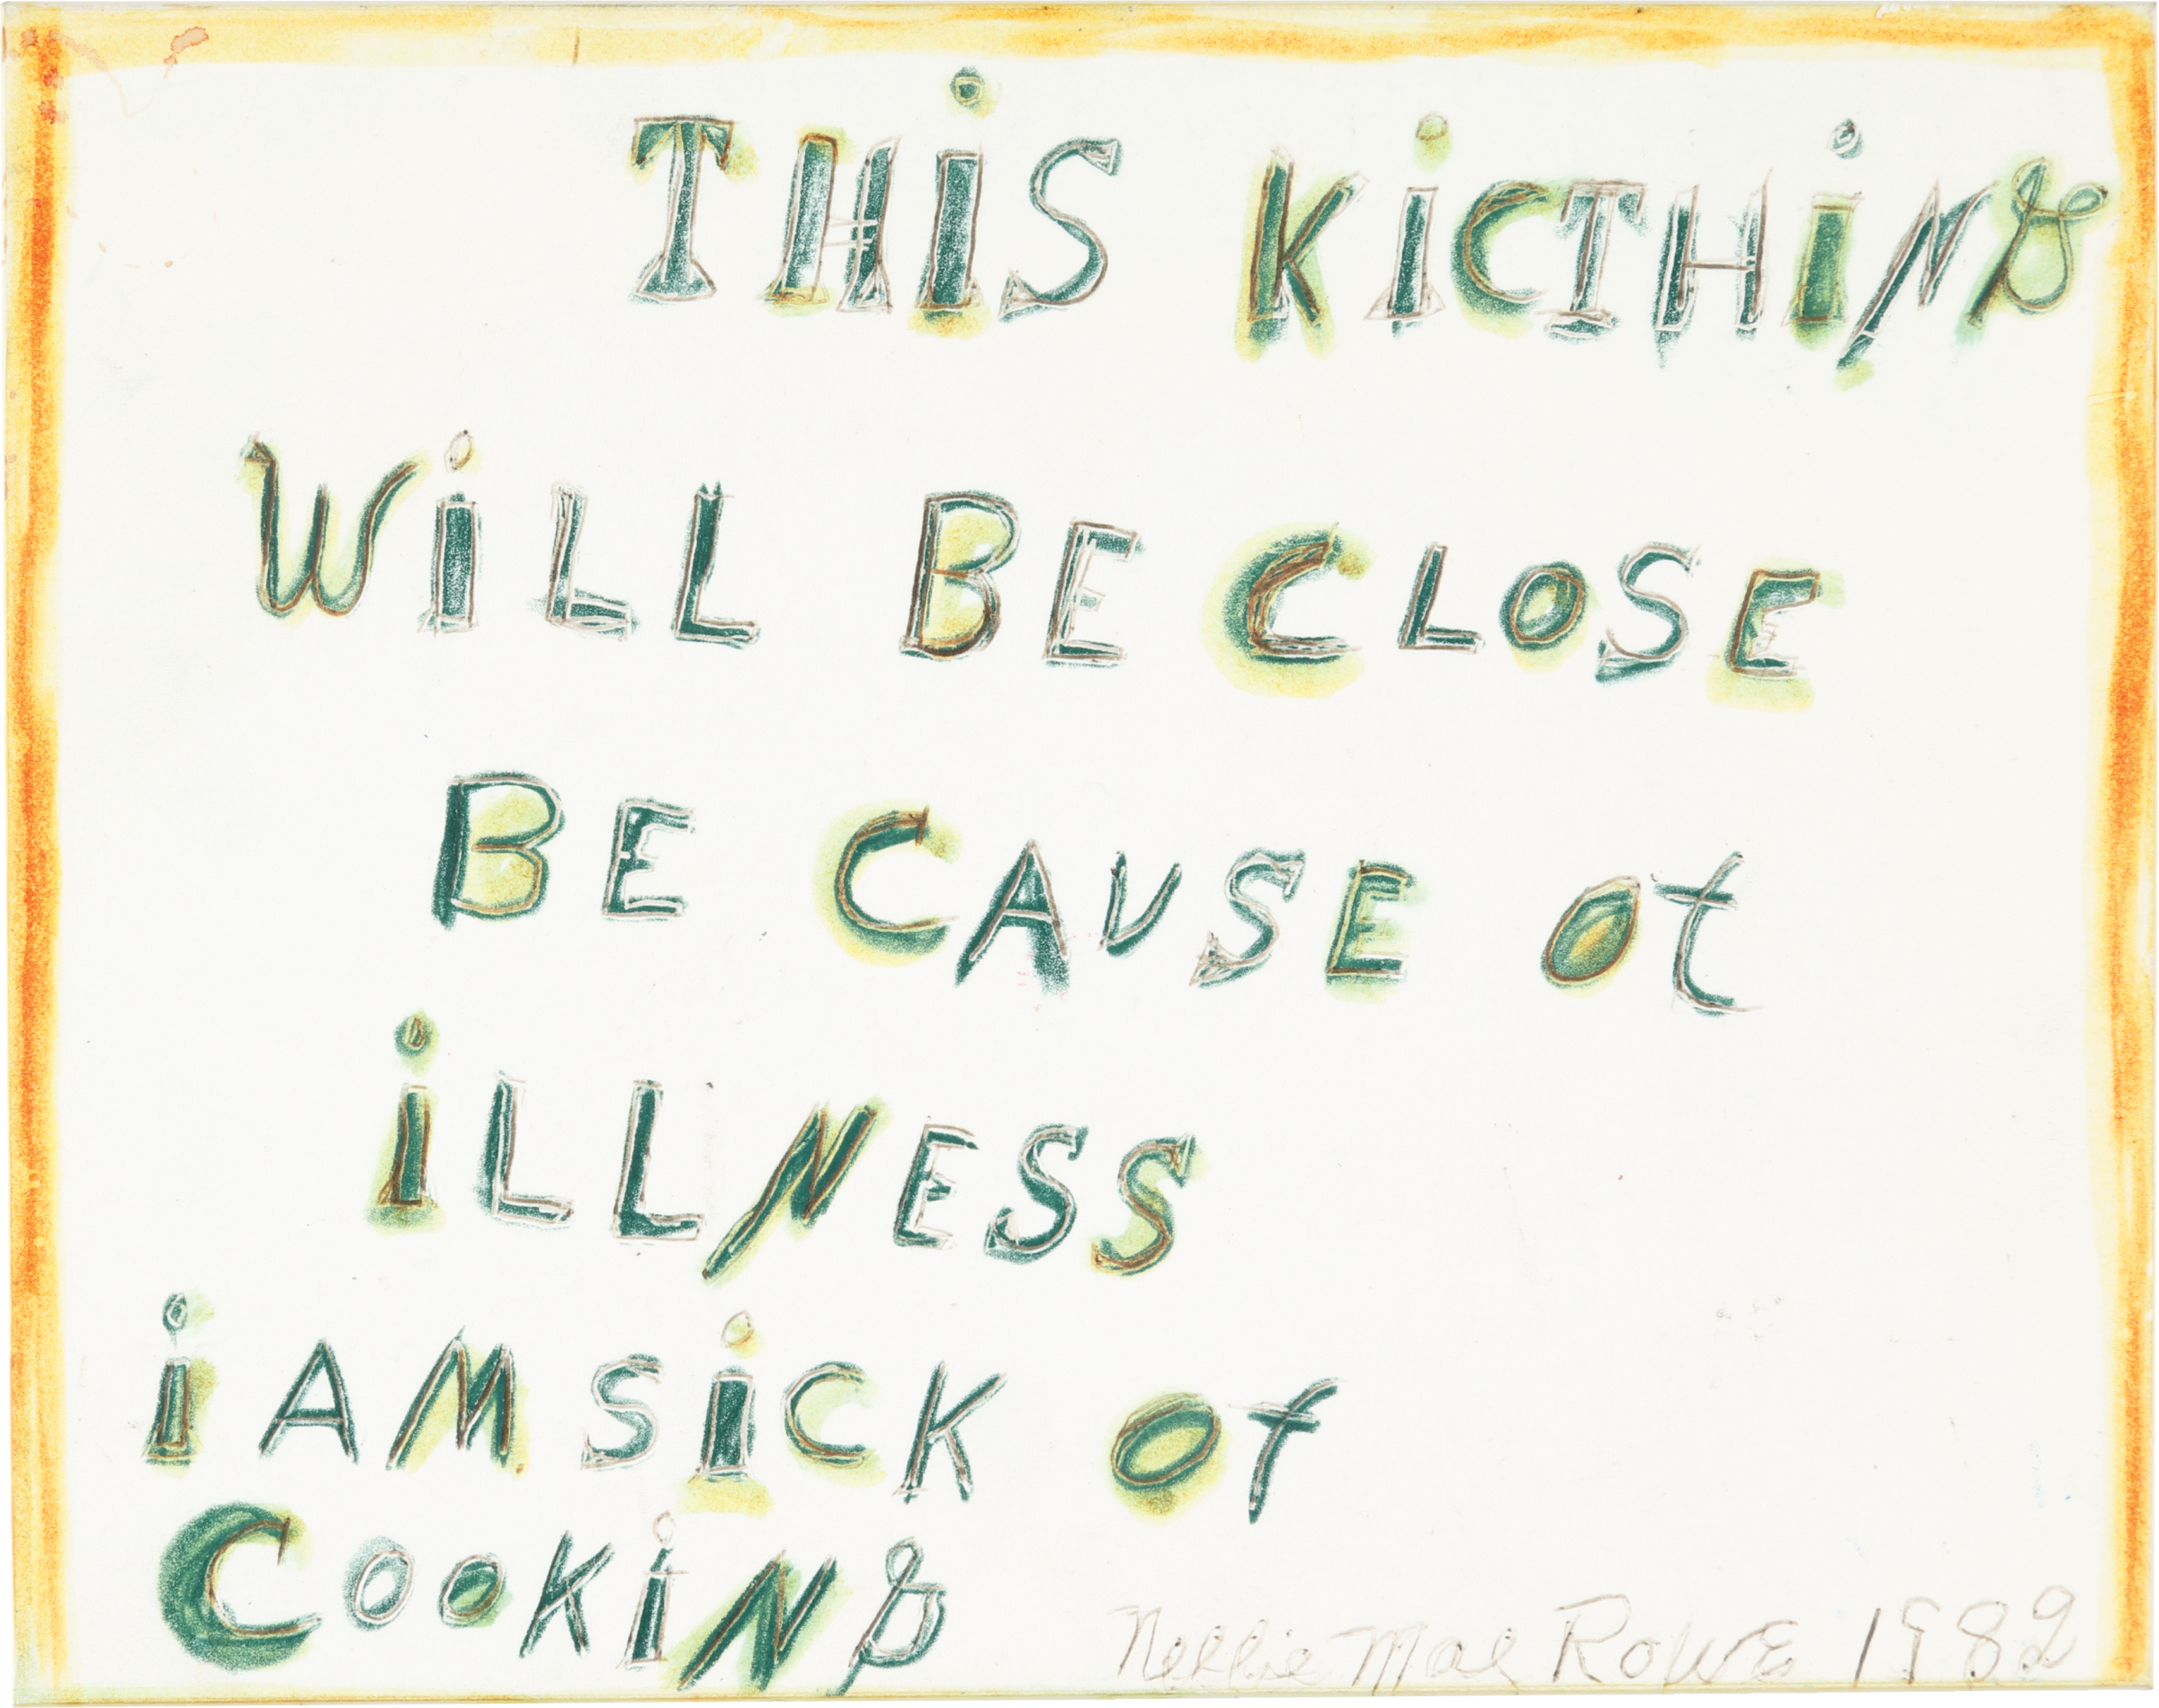 THiS KiCTHiNG
WiLL BE CLOSE
BE CAUSE ot
iLLNESS
i AM SiCK of
COOKiNG
Nellie Mae Rowe 1982